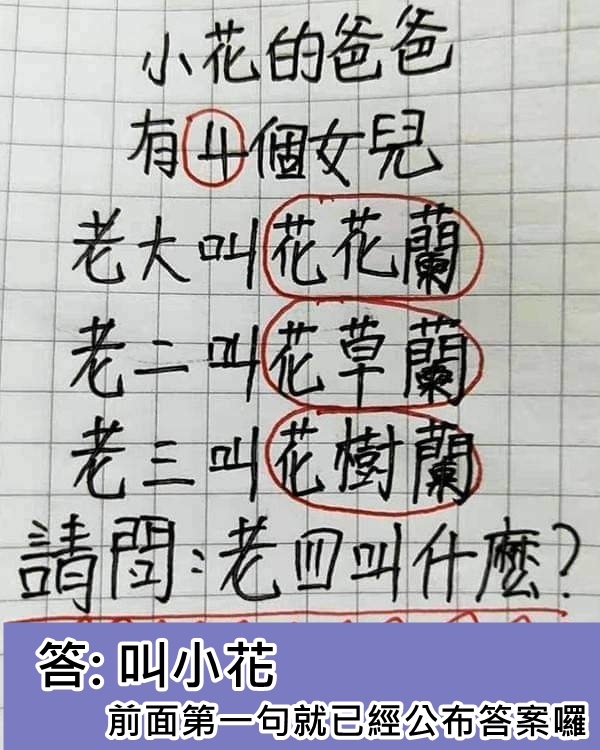 小花的爸爸
有4個女兒
老大叫花花蘭
老二叫花草蘭
老三叫花樹蘭
請問:老四叫什麼?
答:叫小花
前面第一句就已經公布答案囉